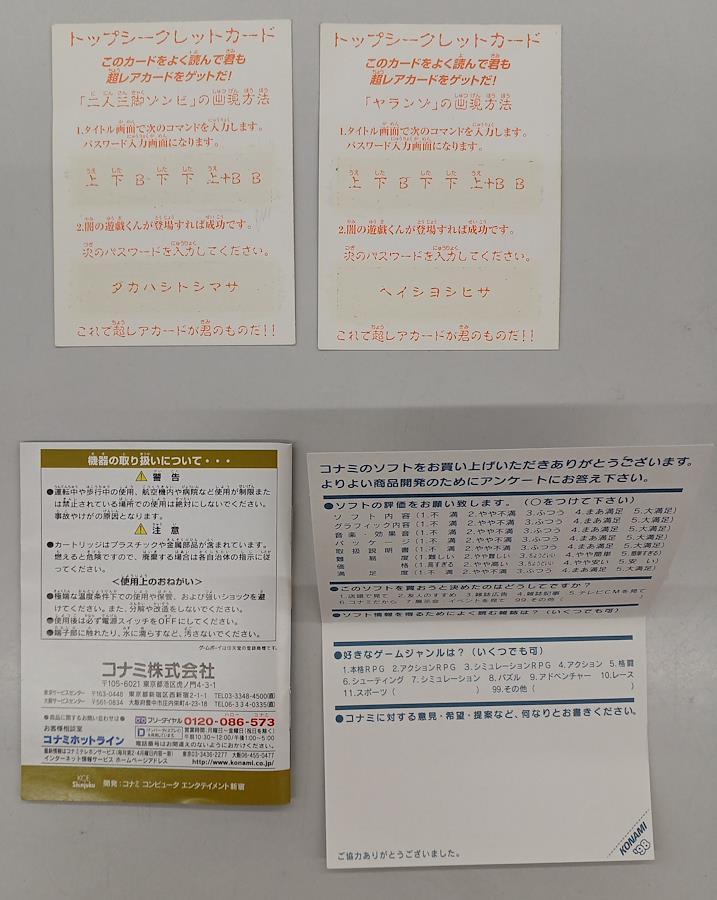 トップシークレットカード
このカードをよく読んで君も
超レアカードをゲットだ!
「二人三脚ゾンビ」の出現方法
1.タイトル画面で次のコマンドを入力します。
パスワード入力画面になります。
上 下 B 下 下 上+B B
2.闇の遊戯くんが登場すれば成功です。
次のパスワードを入力してください。
タカハシトシマサ
これで超レアカードが君のものだ!!
トップシークレットカード
このカードをよく読んで君も
超レアカードをゲットだ!
「ヤランゾ」の出現方法
1.タイトル画面で次のコマンドを入力します。
パスワード入力画面になります。
上 下 B 下 下 上+B B
2.闇の遊戯くんが登場すれば成功です。
次のパスワードを入力してください。
ヘイショシヒサ
これで超レアカードが君のものだ!!
機器の取り扱いについて・・・
警告
●運転中や歩行中の使用、航空機内や病院など使用が制限または禁止されている場所での使用は絶対にしないでください。
事故やけがの原因となります。
注意
●カートリッジはプラスチックや金属部品が含まれています。
燃えると危険ですので、廃棄する場合は各自治体の指示に従ってください。
<使用上のおねがい>
●極端な温度条件下での使用や保管、および強いショックを避けてください。また、分解や改造をしないでください。
●使用後は必ず電源スイッチをOFFにしてください。
●端子部に触れたり、水に濡らすなど、汚さないでください。
ゲームボーイは任天堂の登録商標です。
コナミ株式会社
〒105-6021 東京都港区虎ノ門4-3-1
東京サービスセンター 〒163-0448 東京都新宿区西新宿2-1-1 TEL03-3348-4500(直)
大阪サービスセンター 〒561-0834 大阪府豊中市庄内栄町4-23-18 TEL06-334-0335(直)
●商品に関するお問い合わせは●
お客様相談室
コナミホットライン
フリーダイヤル 0120-086-573
営業時間:月曜日〜金曜日(祝日を除く)
午前10:30〜12:00/午後1:00〜5:00
電話番号はお間違えのないようにおかけください。
最新情報はコナミテレホンサービス(毎月第2・4月曜日内容一新) 東京03-3436-2277 大阪06-455-0477
インターネット情報サービス ホームページアドレス http://www.konami.co.jp/
KCE Shinjuku
開発:コナミ コンピュータ エンタテイメント新宿
コナミのソフトをお買い上げいただきありがとうございます。
よりよい商品開発のためにアンケートにお答え下さい。
●ソフトの評価をお願い致します。(○をつけて下さい)
ソフト内容(1.不満 2.やや不満 3.ふつう 4.まあ満足 5.大満足)
グラフィック内容(1.不満 2.やや不満 3.ふつう 4.まあ満足 5.大満足)
音楽・効果音(1.不満 2.やや不満 3.ふつう 4.まあ満足 5.大満足)
パッケージ(1.不満 2.やや不満 3.ふつう 4.まあ満足 5.大満足)
取扱説明書(1.不満 2.やや不満 3.ふつう 4.まあ満足 5.大満足)
難易度(1.難しい 2.やや難しい 3.ちょうどいい 4.やや簡単 5.簡単すぎる)
価格(1.高すぎる 2.やや高い 3.ちょうどいい 4.やや安い 5.安い)
満足度(1.不満 2.やや不満 3.ふつう 4.まあ満足 5.大満足)
●このソフトを買おうと決めたのはどうしてですか?
1.店頭で見て 2.友人のすすめ 3.雑誌広告 4.雑誌記事 5.テレビCMを見て
6.コナミだから 7.展示会・イベントを見て 99.その他(
●ソフト情報を得るためによく読む雑誌は?(いくつでも可)
●好きなゲームジャンルは?(いくつでも可)
1.本格RPG 2.アクションRPG 3.シミュレーションRPG 4.アクション 5.格闘
6.シューティング 7.シミュレーション 8.パズル 9.アドベンチャー 10.レース
11.スポーツ( ) 99.その他( )
●コナミに対する意見・希望・提案など、何なりとお書きください。
ご協力ありがとうございました。
KONAMI '98